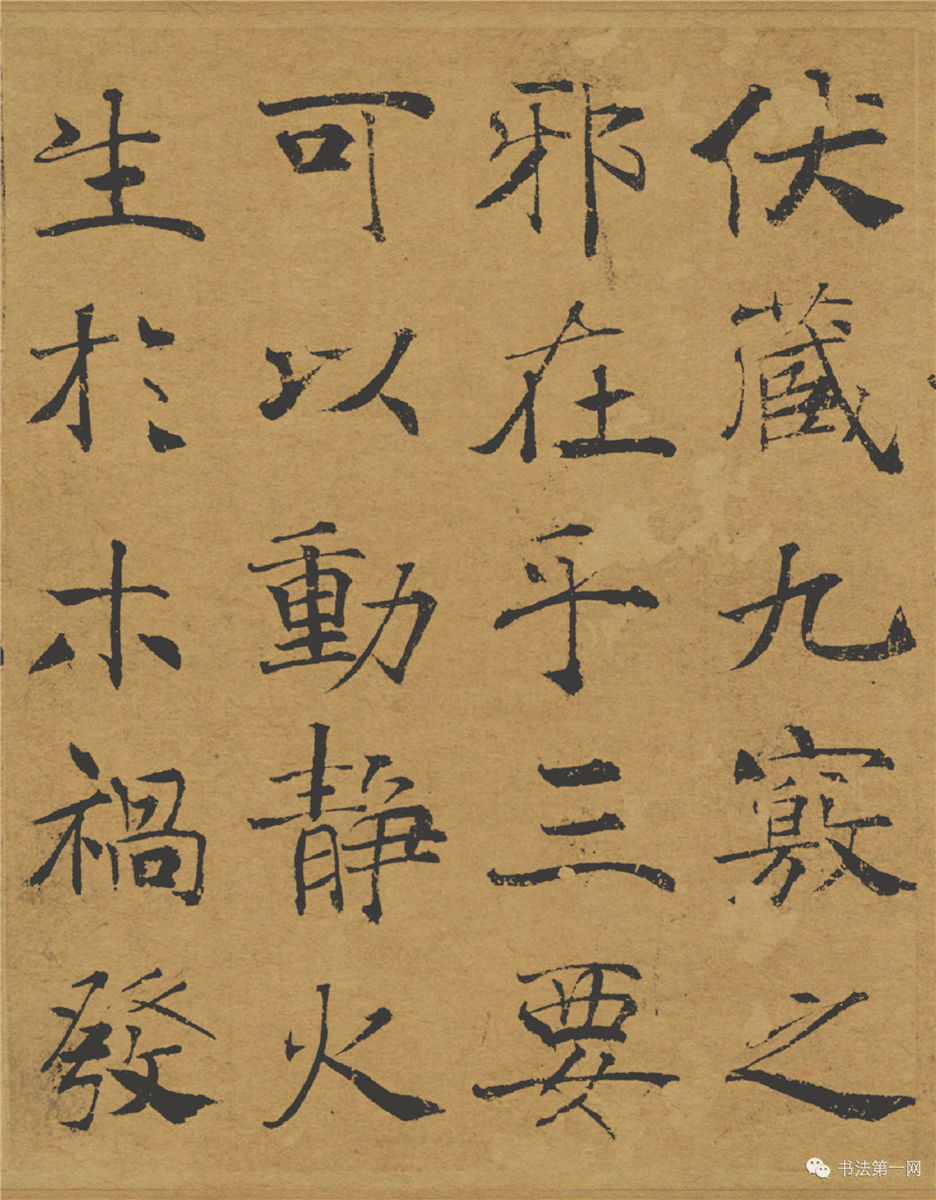 伏藏九竅之
邪在乎三要
可以動靜火
生於木禍發
书法第一网